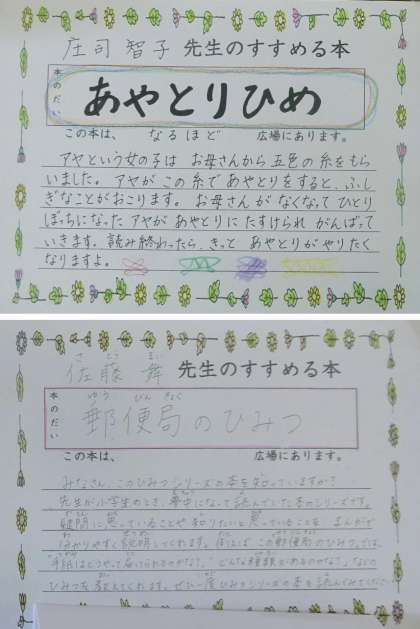 庄司 智子 先生のすすめる本
本のだい
あやとりひめ
この本は、 なるほど 広場にあります。
アヤという女の子は お母さんから 五色の糸をもら
いました。アヤが この糸で あやとりをすると、ふし
ぎなことがおこります。お母さんが なくなって ひとり
ぼっちになった アヤが あやとりに たすけられ がんばって
いきます。読み終わったら、きっと あやとりが やりたく
なりますよ。
さ とう まい
佐藤 舞 先生のすすめる本
本のだい
ゆう びん きょく
郵便局のひみつ
この本は、 広場にあります。
みなさん、このひみつシリーズの本を知っていますか?
先生が小学生のとき、夢中になって読んでいた本のシリーズです。
疑問に思っていることや 知りたいと思っていることを まんがで
わかりやすく説明してくれます。 この郵便局のひみつでは、
手紙はどうやって届けられるのかな?、どんな種類があるのかな?、などの
ひみつを教えてくれます。ぜひ一度ひみつシリーズの本を読んでみてください。